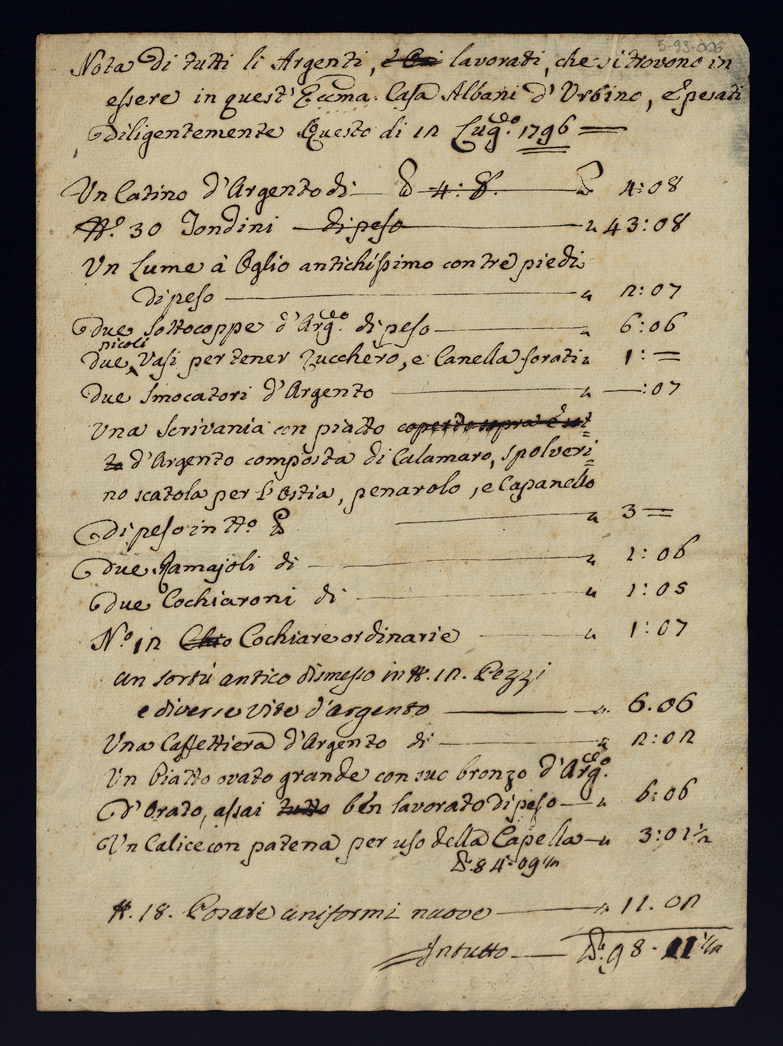 5-93-006
Nota di tutti li Argenti, lavorati, che si trovono in
essere in quest' Eccma. Casa Albani d'Urbino, e pesati
diligentemente questo di 12 Lugo. 1796 =
Un Catino d'Argento di 4: 8. 4:08
No. 30 Tondini di peso " 43:08
Un Lume à Oglio antichissimo con tre piedi
di peso " 2:07
Due sottocoppe d'Argto. di peso " 6:06
due picoli Vasi per tener Zucchero, e Canella forati " 1:=
due smocatori d'Argento " —:07
Una scrivania con piatto coperto sopra e sot=
to d'Argento composta di Calamaro, spolveri=
no scatola per l'Ostia, penarolo, e Capanello
di peso in tto. " 3=
due Ramajoli di " 1:06
due Cochiaroni di " 1:05
No. 12 Cochiare ordinarie " 1:07
un sortù antico dismesso in N. 12. Pezzi
e diverse vite d'argento " 6.06
Una Caffettiera d'Argento di " 2:02
Un Piatto ovato grande con suo bronzo d'Argto.
d'Orato, assai tutto ben lavorato di peso " 6:06
Un Calice con patena per uso della Capella " 3:01½
84:09½
N. 18. Posate uniformi nuove " 11.02
In tutto 98.11½